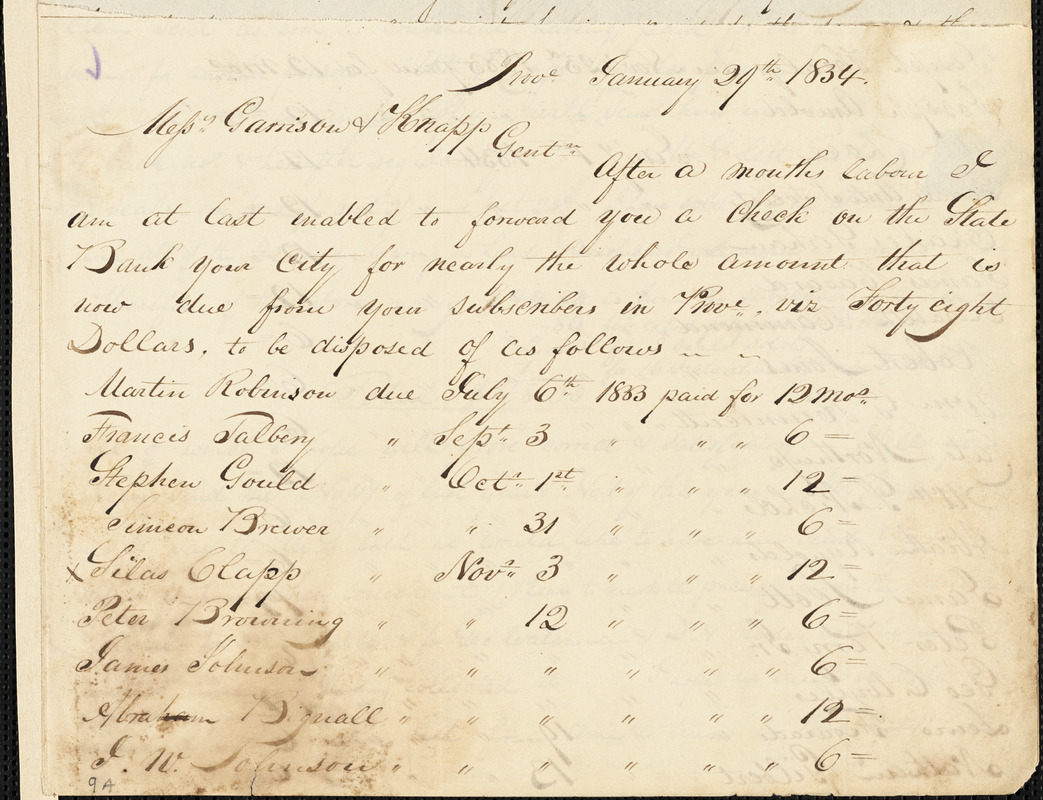 Prov.e January 29th 1834.
Messrs Garrison & Knapp
Gentn
After a months labour I
am at last enabled to forward you a Check on the State
Bank your City for nearly the whole amount that is
now due from your subscribers in Prove, viz Forty eight
Dollars, to be disposed of as follows
Martin Robinson due July 6th 1833 paid for 12 mos
Francis Talbery " Sept. 3 " " " 6 =
Stephen Gould " Octr 1st " " " 12 =
Simeon Brewer " " 31 " " " 6 =
x Silas Clapp " Novr 3 " " " 12 =
Peter Browning " " 12 " " " 6 =
James Johnson " " " " " " 6 =
Abraham Bignall " " " " " " 12 =
J. W. Johnson " " " " " " 6 =
9A